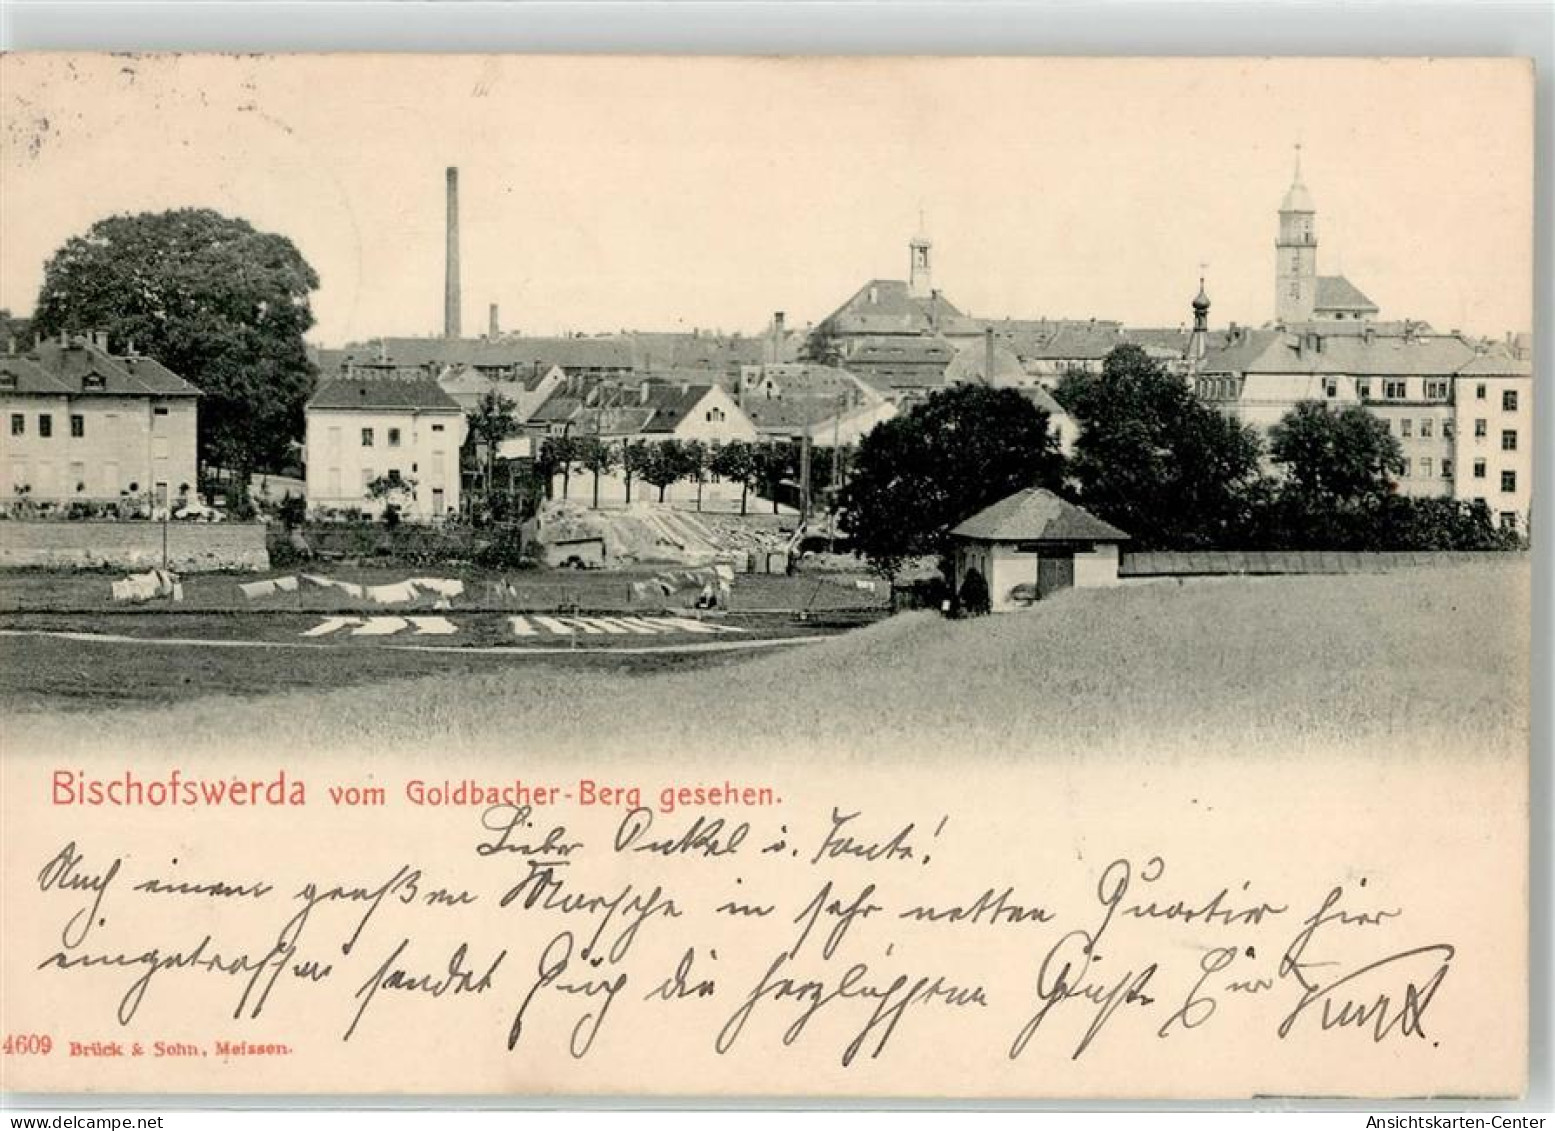 Bischofswerda vom Goldbacher-Berg gesehen.
Lieber Onkel u. Tante!
Nach einem großen Marsche in sehr netten Quartier hier
eingetroffen sendet Euch die herzlichsten Grüße Eur Kurt.
4609 Brück & Sohn, Meissen.
Ansichtskarten-Center